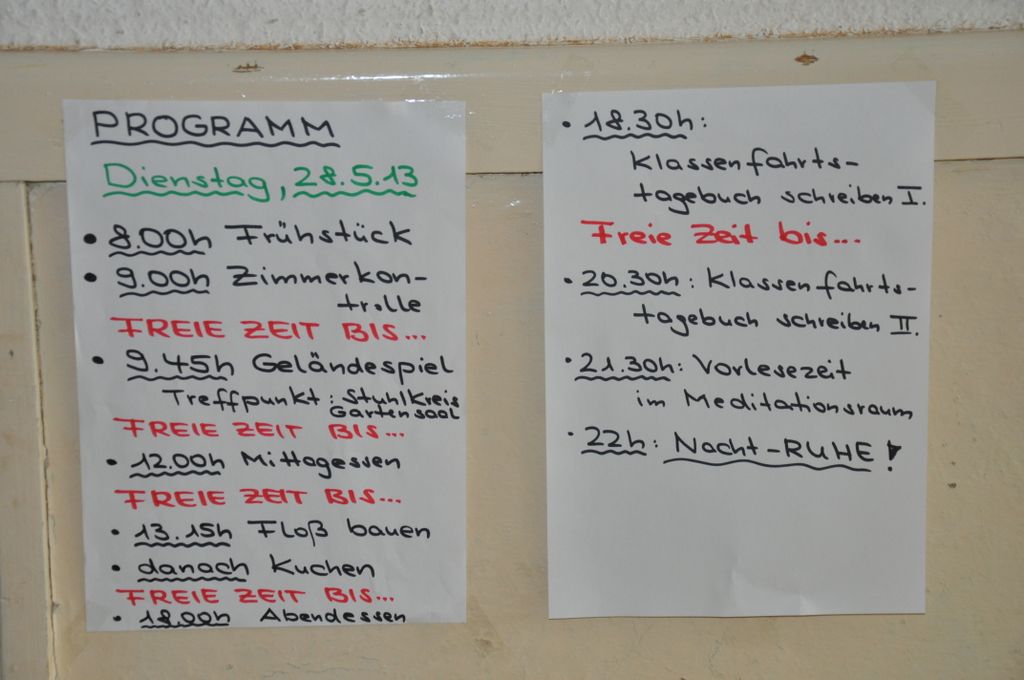 PROGRAMM
Dienstag, 28.5.13
• 8.00h Frühstück
• 9.00h Zimmerkon-
trolle
FREIE ZEIT BIS...
• 9.45h Geländespiel
Treffpunkt: Stuhlkreis
Gartensaal
FREIE ZEIT BIS...
• 12.00h Mittagessen
FREIE ZEIT BIS...
• 13.15h Floß bauen
• danach Kuchen
FREIE ZEIT BIS...
• 18.00h Abendessen
• 18.30h:
Klassenfahrts-
tagebuch schreiben I.
Freie Zeit bis...
• 20.30h: Klassenfahrts-
tagebuch schreiben II.
• 21.30h: Vorlesezeit
im Meditationsraum
• 22h: Nacht-RUHE!